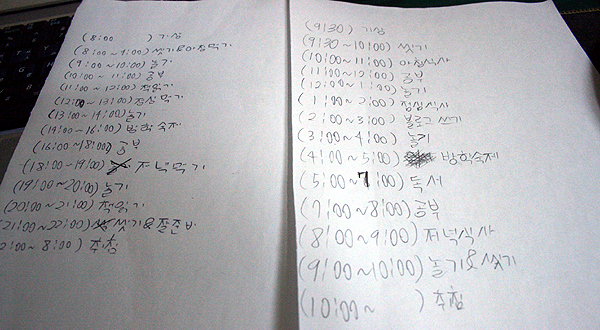 (8:00 ) 기상
(8:00 ~ 9:00) 씻기&아침먹기
(9:00 ~ 10:00) 놀기
(10:00 ~ 11:00) 공부
(11:00 ~ 12:00) 책읽기
(12:00 ~ 13:00) 점심 먹기
(13:00 ~ 14:00) 놀기
(14:00 ~ 16:00) 방학 숙제
(16:00 ~ 18:00) 공부
(18:00 ~ 19:00) 저녁먹기
(19:00 ~ 20:00) 놀기
(20:00 ~ 21:00) 책읽기
(21:00 ~ 22:00) 씻기&잘준비
2:00 ~ 8:00) 취침
(9:30) 기상
(9:30 ~ 10:00) 씻기
(10:00 ~ 11:00) 아침식사
(11:00 ~ 12:00) 공부
(12:00 ~ 1:00) 놀기
(1:00 ~ 2:00) 점심식사
(2:00 ~ 3:00) 블로그 쓰기
(3:00 ~ 4:00) 놀기
(4:00 ~ 5:00) 방학숙제
(5:00 ~ 7:00) 독서
(7:00 ~ 8:00) 공부
(8:00 ~ 9:00) 저녁식사
(9:00 ~ 10:00) 놀기&씻기
(10:00 ~ ) 취침